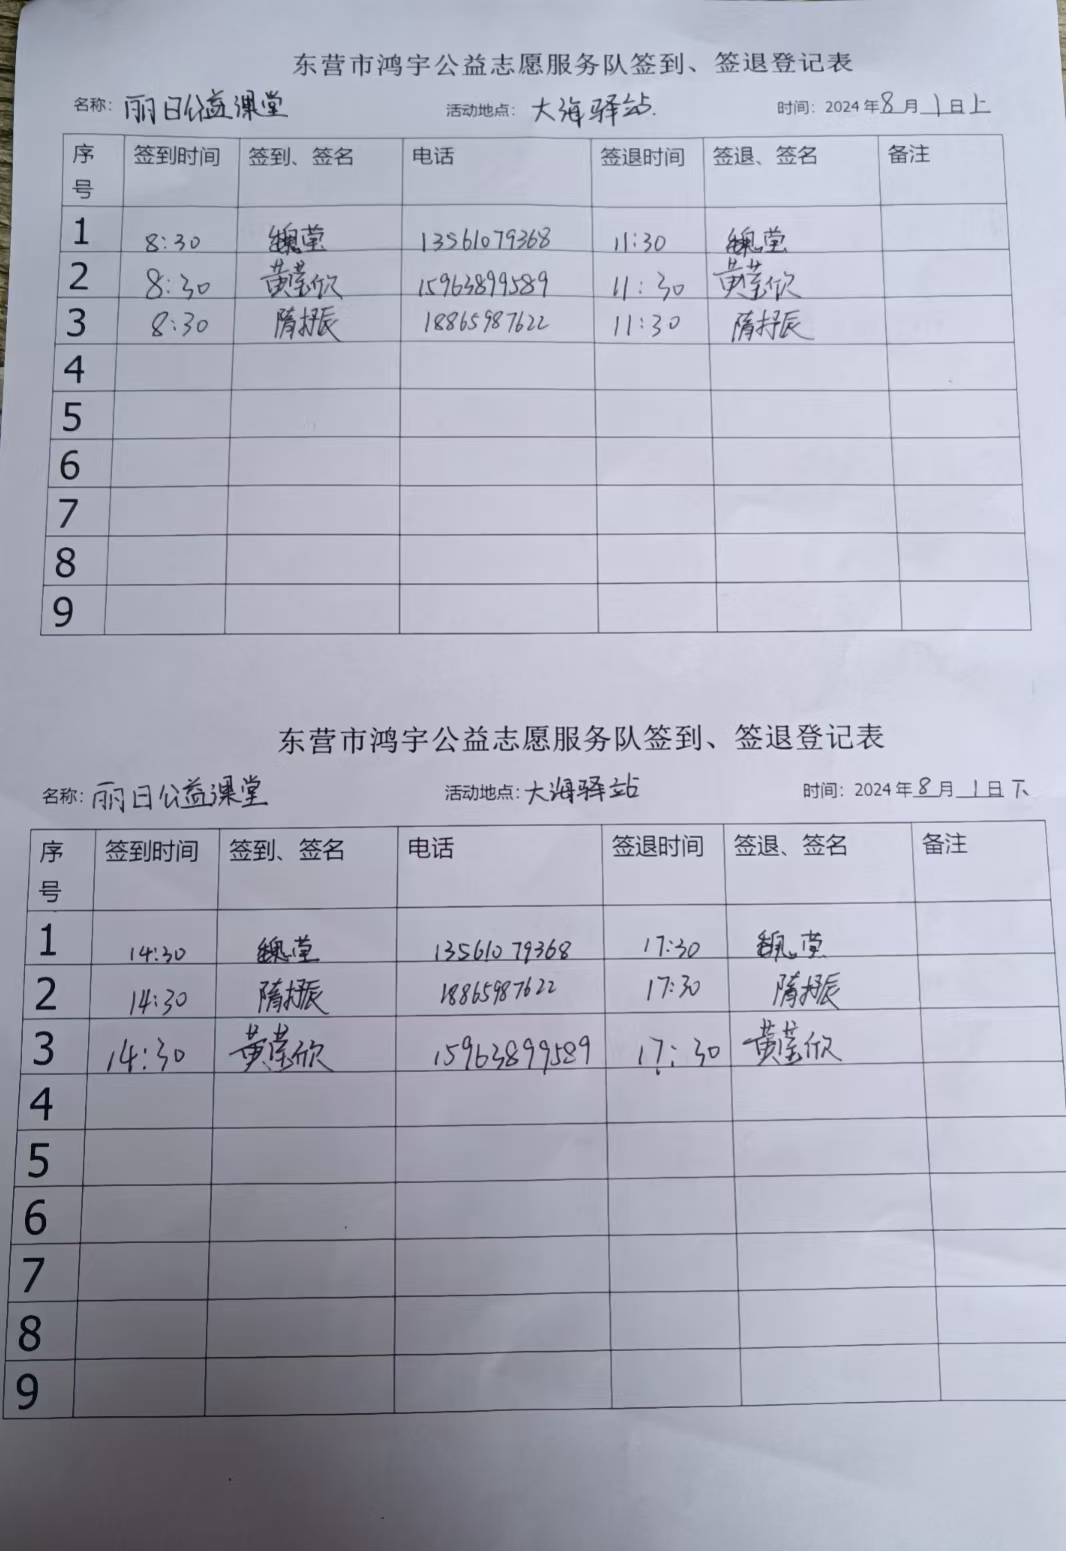 东营市鸿宇公益志愿服务队签到、签退登记表
名称: 丽日公益课堂 活动地点: 大海驿站. 时间: 2024年8月1日上
序号 签到时间 签到、签名 电话 签退时间 签退、签名 备注
1 8:30 魏莹 13561079368 11:30 魏莹
2 8:30 黄莹欣 15963899589 11:30 黄莹欣
3 8:30 隋抒辰 18865987622 11:30 隋抒辰
4
5
6
7
8
9
东营市鸿宇公益志愿服务队签到、签退登记表
名称: 丽日公益课堂 活动地点: 大海驿站 时间: 2024年8月1日下
序号 签到时间 签到、签名 电话 签退时间 签退、签名 备注
1 14:30 魏莹 13561079368 17:30 魏莹
2 14:30 隋抒辰 18865987622 17:30 隋抒辰
3 14:30 黄莹欣 15963899589 17:30 黄莹欣
4
5
6
7
8
9